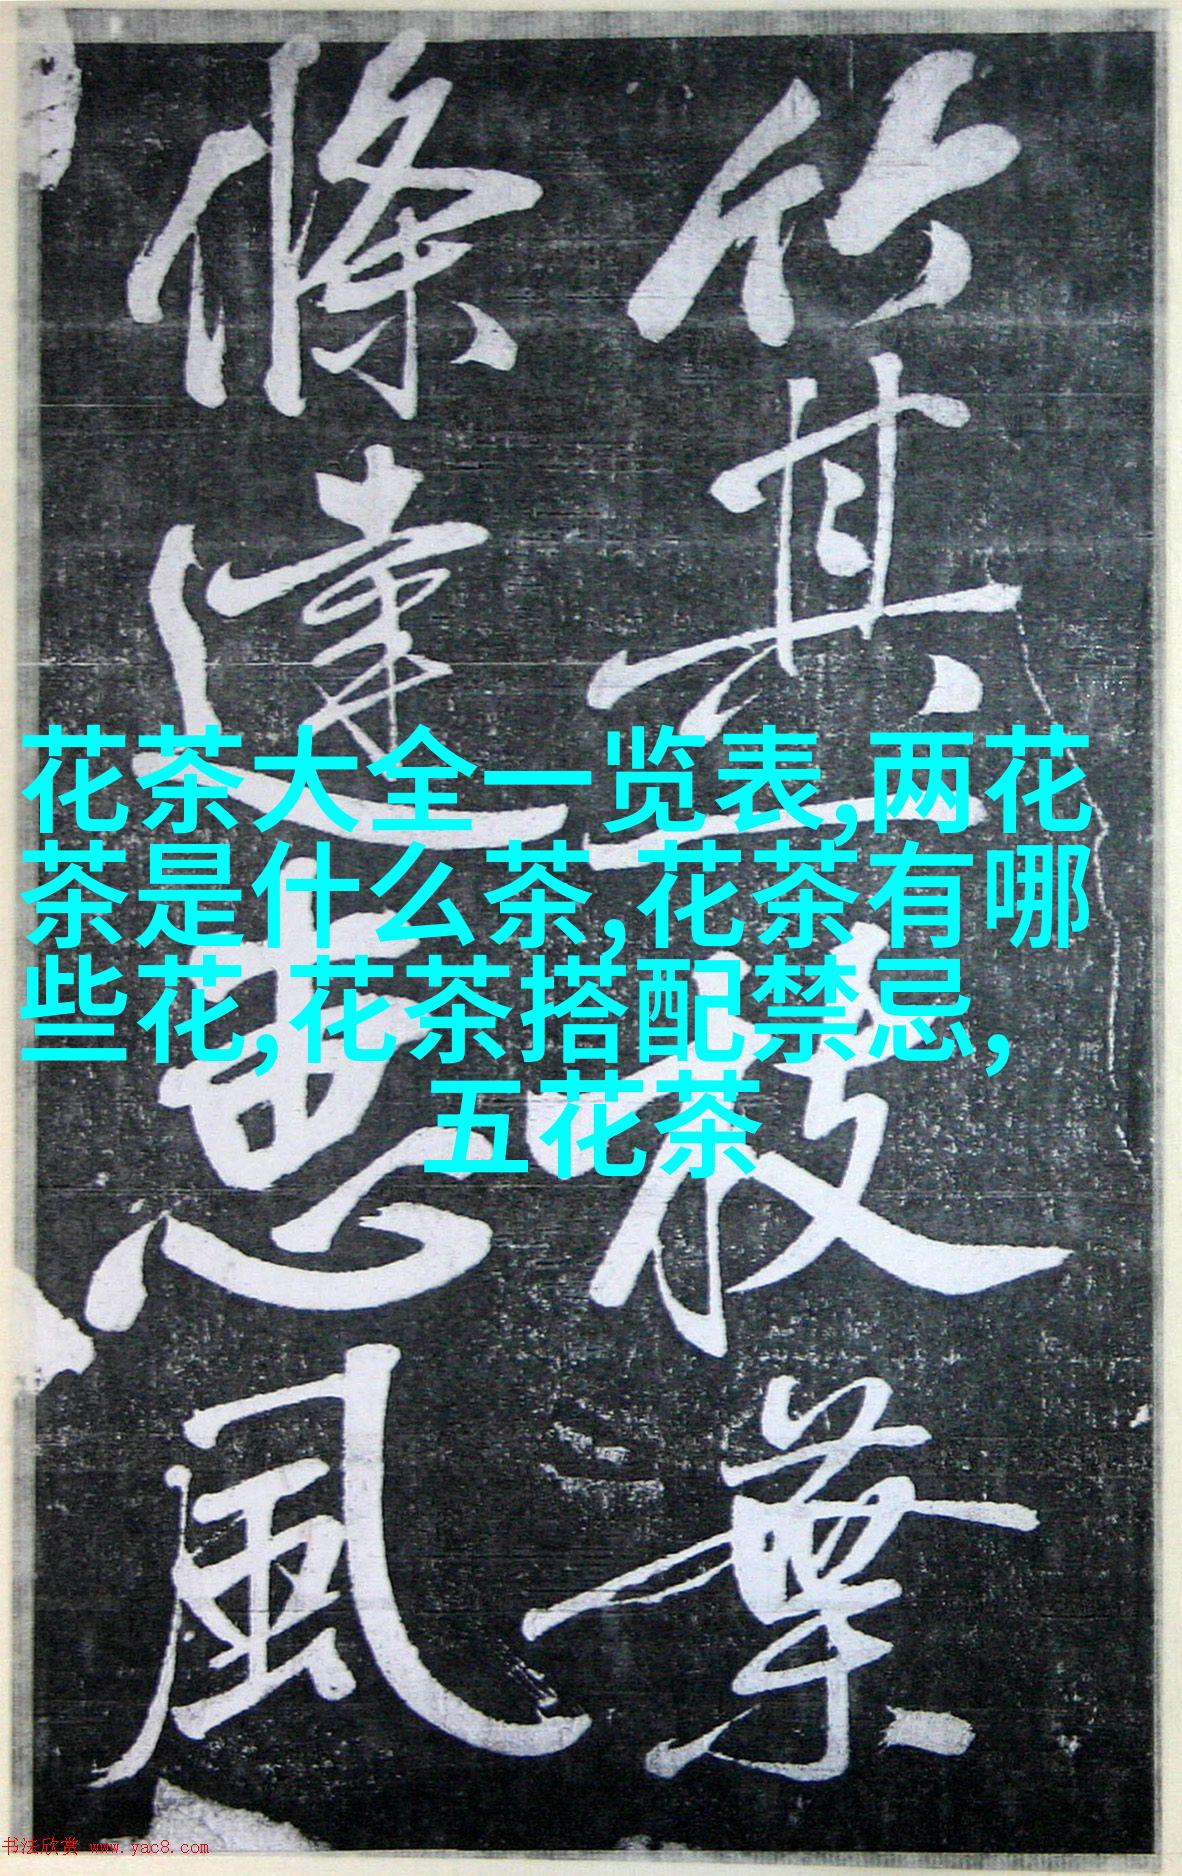 竹其一枝葉
條達惠風
花茶大全一览表,两花
茶是什么茶,花茶有哪
些花,花茶搭配禁忌,
五花茶
书法欣赏 www.yac8.com